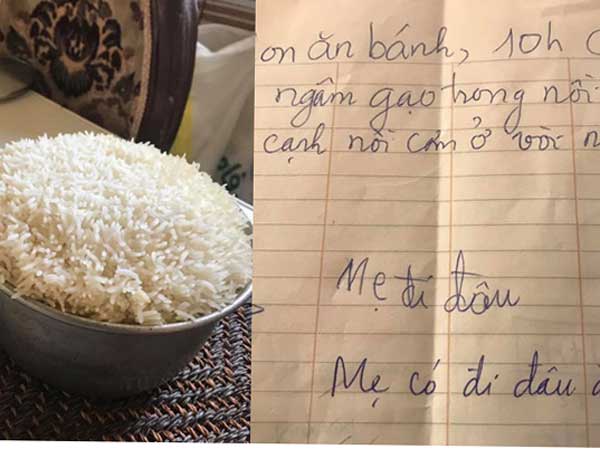 on ăn bánh, 10h
ngâm gạo trong nồi
cạnh nồi cơm ở vòi
Mẹ đi đâu
Mẹ có đi đâu